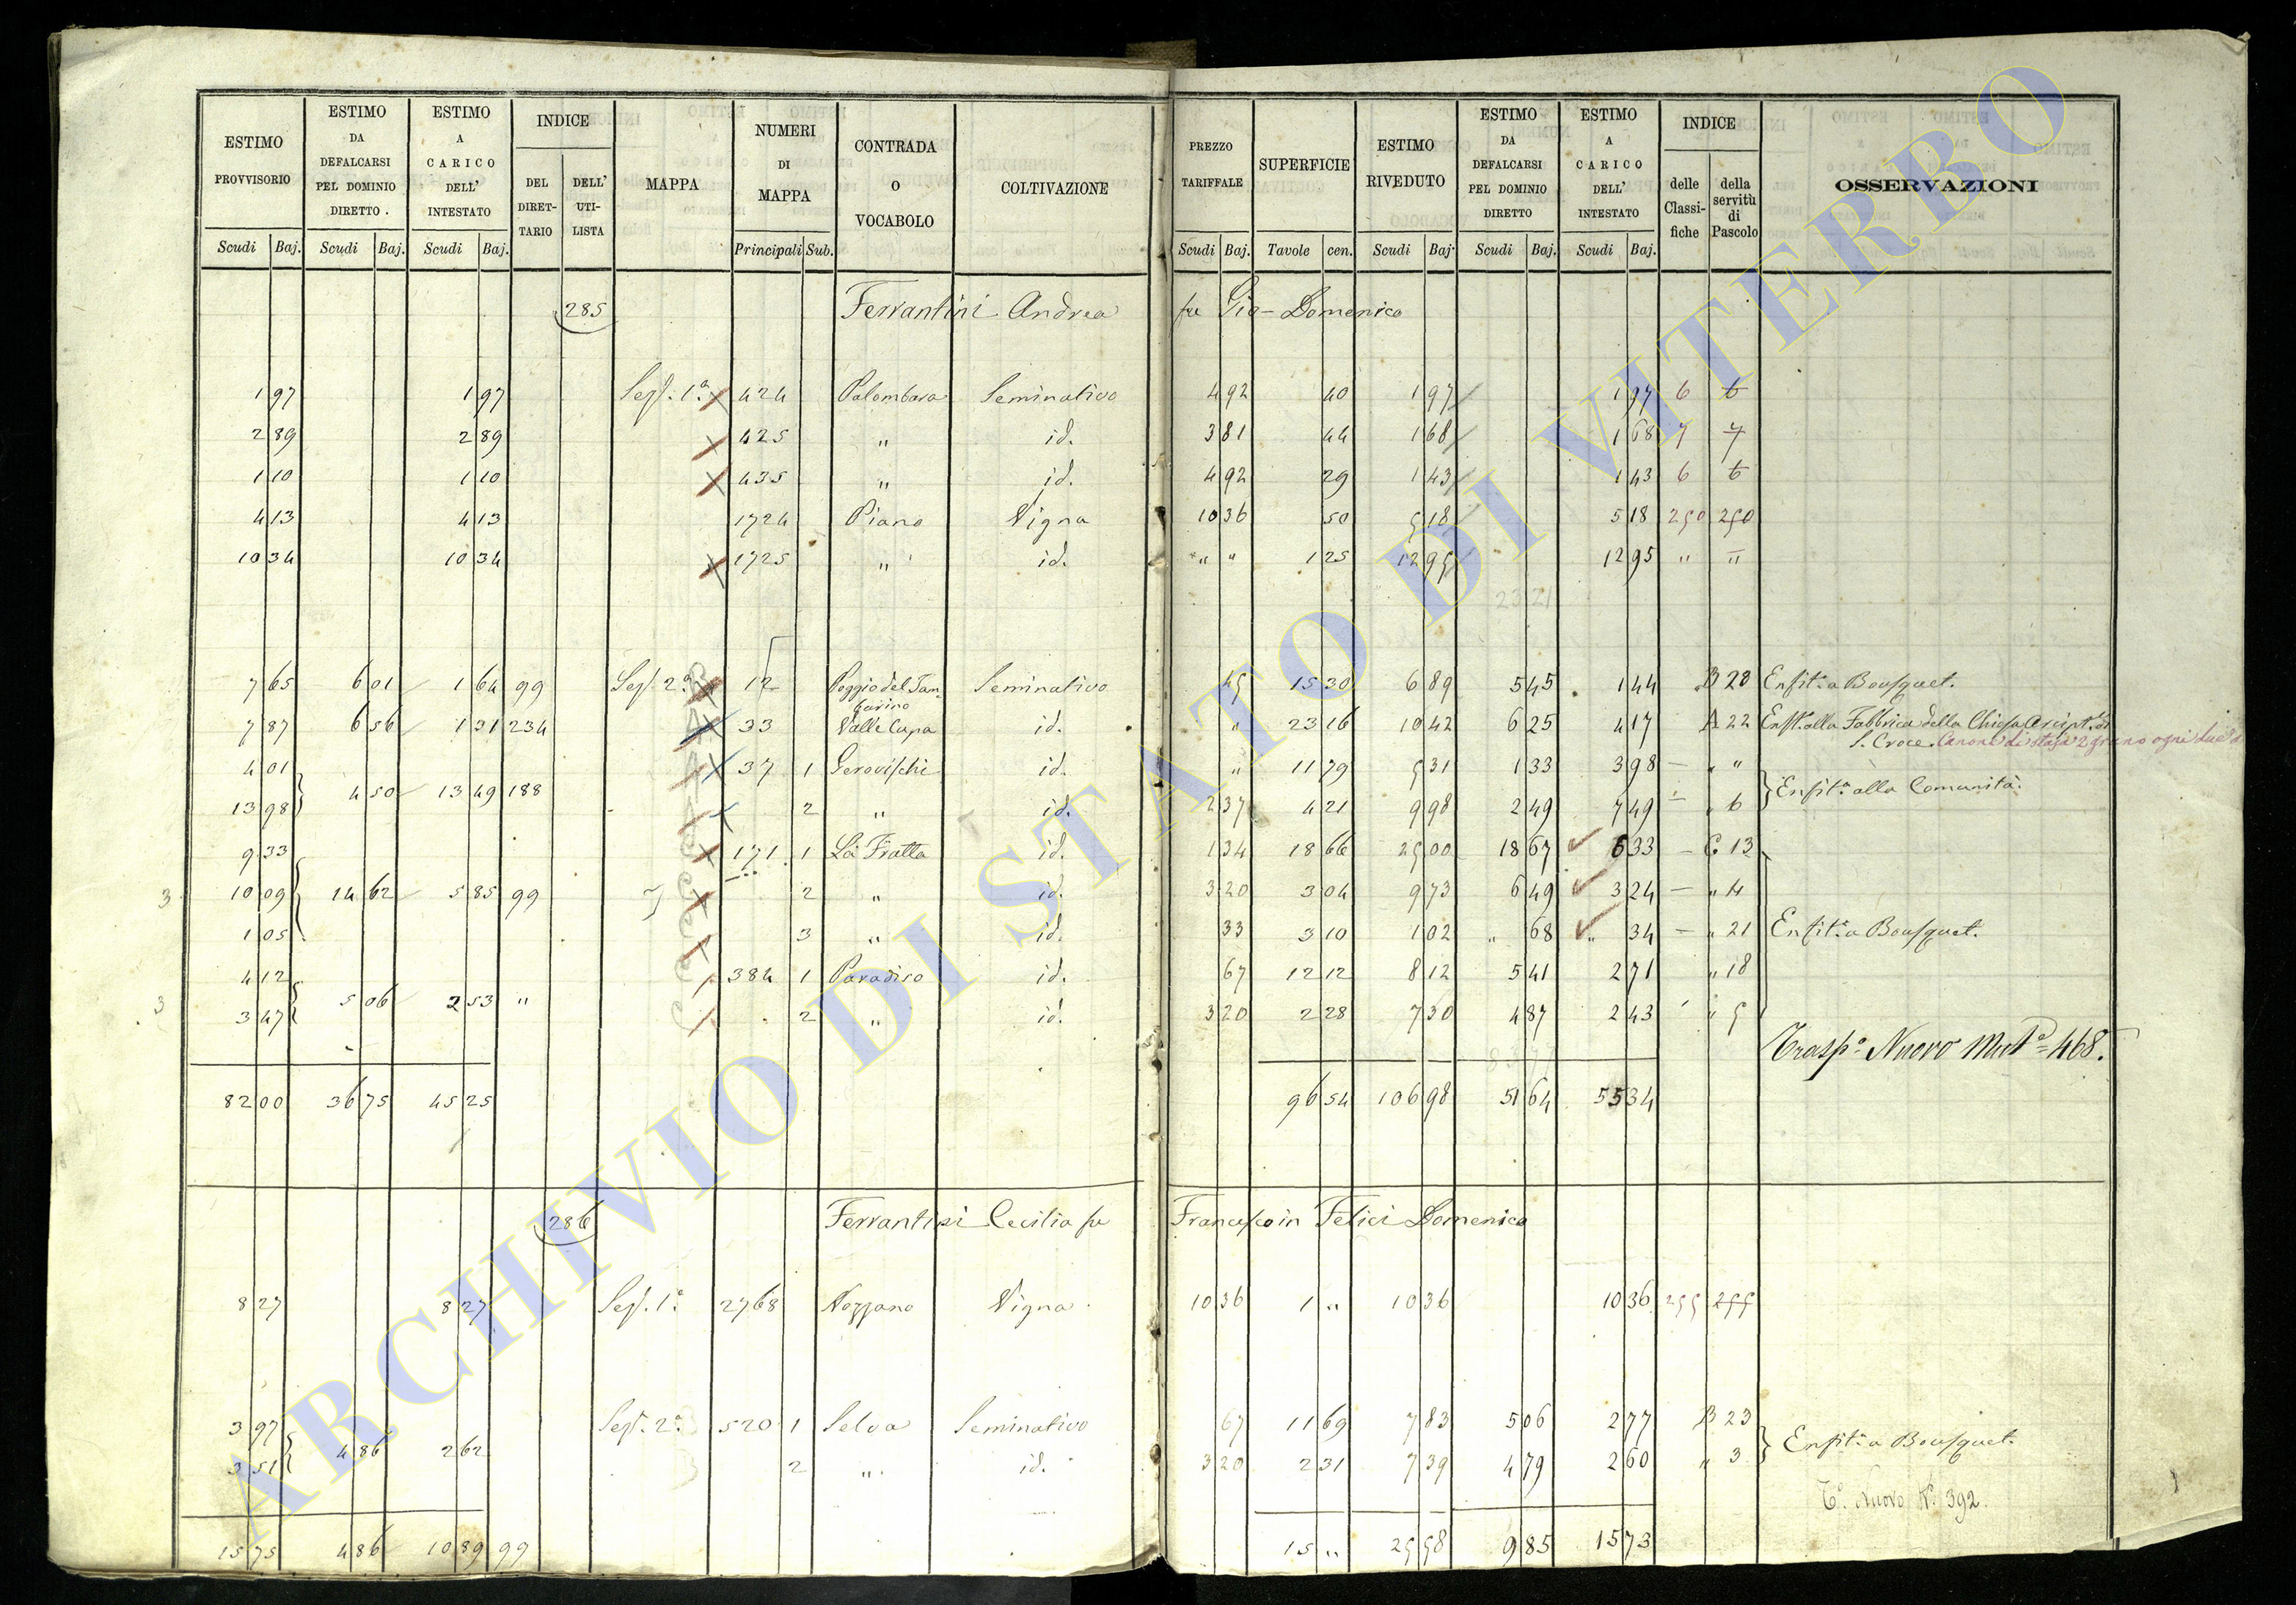 ESTIMO PROVVISORIO | ESTIMO DA DEFALCARSI PEL DOMINIO DIRETTO . | ESTIMO A CARICO DELL' INTESTATO | INDICE | MAPPA | NUMERI DI MAPPA | CONTRADA O VOCABOLO | COLTIVAZIONE | PREZZO TARIFFALE | SUPERFICIE | ESTIMO RIVEDUTO | ESTIMO DA DEFALCARSI PEL DOMINIO DIRETTO | ESTIMO A CARICO DELL' INTESTATO | INDICE | OSSERVAZIONI
DEL DIRET-TARIO | DELL' UTI-LISTA | delle Classi-fiche | della servitù di Pascolo
Scudi | Baj. | Scudi | Baj. | Scudi | Baj. | Principali | Sub. | Scudi | Baj. | Tavole | cen. | Scudi | Baj. | Scudi | Baj. | Scudi | Baj.
285 Ferrantini Andrea fu Gio-Domenico
1 97 1 97 Sez. 1ª 424 Palombara Seminativo 4 92 40 1 97 1 97 6 6
2 89 2 89 425 " id. 3 81 44 1 68 1 68 7 7
1 10 1 10 435 " id. 4 92 29 1 43 1 43 6 6
4 13 4 13 1724 Piano Vigna 10 36 50 5 18 5 18 250 250
10 34 10 34 1725 " id. " " 1 25 12 95 12 95 " "
23 21
7 65 6 01 1 64 99 Sez. 2ª 12 Poggio del Tam- Seminativo 45 15 30 6 89 5 45 1 44 B 28 Enfit. a Bousquet.
burino
7 87 6 56 1 31 234 33 Valle Cupa id. " 23 16 10 42 6 25 4 17 A 22 Enft. alla Fabbrica della Chiesa
S. Croce. Canone di staja 2 grano ogni due
4 01 37 1 id. " 11 79 5 31 1 33 3 98 — " "
4 50 13 49 188 Enfit. alla Comunità.
13 98 2 " id. 2 37 4 21 9 98 2 49 7 49 — " 6
9 33 171 1 La Fratta id. 1 34 18 66 25 00 18 67 6 33 — C 13
3 10 09 14 62 5 85 99 2 " id. 3 20 3 04 9 73 6 49 3 24 — " 4
1 05 3 " id. 33 3 10 1 02 " 68 " 34 — " 21 Enfit. a Bousquet.
4 12 384 1 Paradiso id. 67 12 12 8 12 5 41 2 71 " 18
3 5 06 2 53 "
3 47 2 " id. 3 20 2 28 7 30 4 87 2 43 " 5
Trasp. Nuovo Mat. 468.
82 00 36 75 45 25 96 54 106 98 51 64 55 34
286 Ferrantini Cecilia fu Francesco in Felici Domenico
8 27 8 27 Sez. 1ª 2768 Nozzano Vigna 10 36 1 " 10 36 10 36 255 255
3 97 Sez. 2ª 520 1 Selva Seminativo 67 11 69 7 83 5 06 2 77 B 23
4 86 2 62 Enfit. a Bousquet.
3 51 2 " id. 3 20 2 31 7 39 4 79 2 60 " 3
T. Nuovo N. 392.
15 75 4 86 10 89 99 15 " 25 58 9 85 15 73
ARCHIVIO DI STATO DI VITERBO